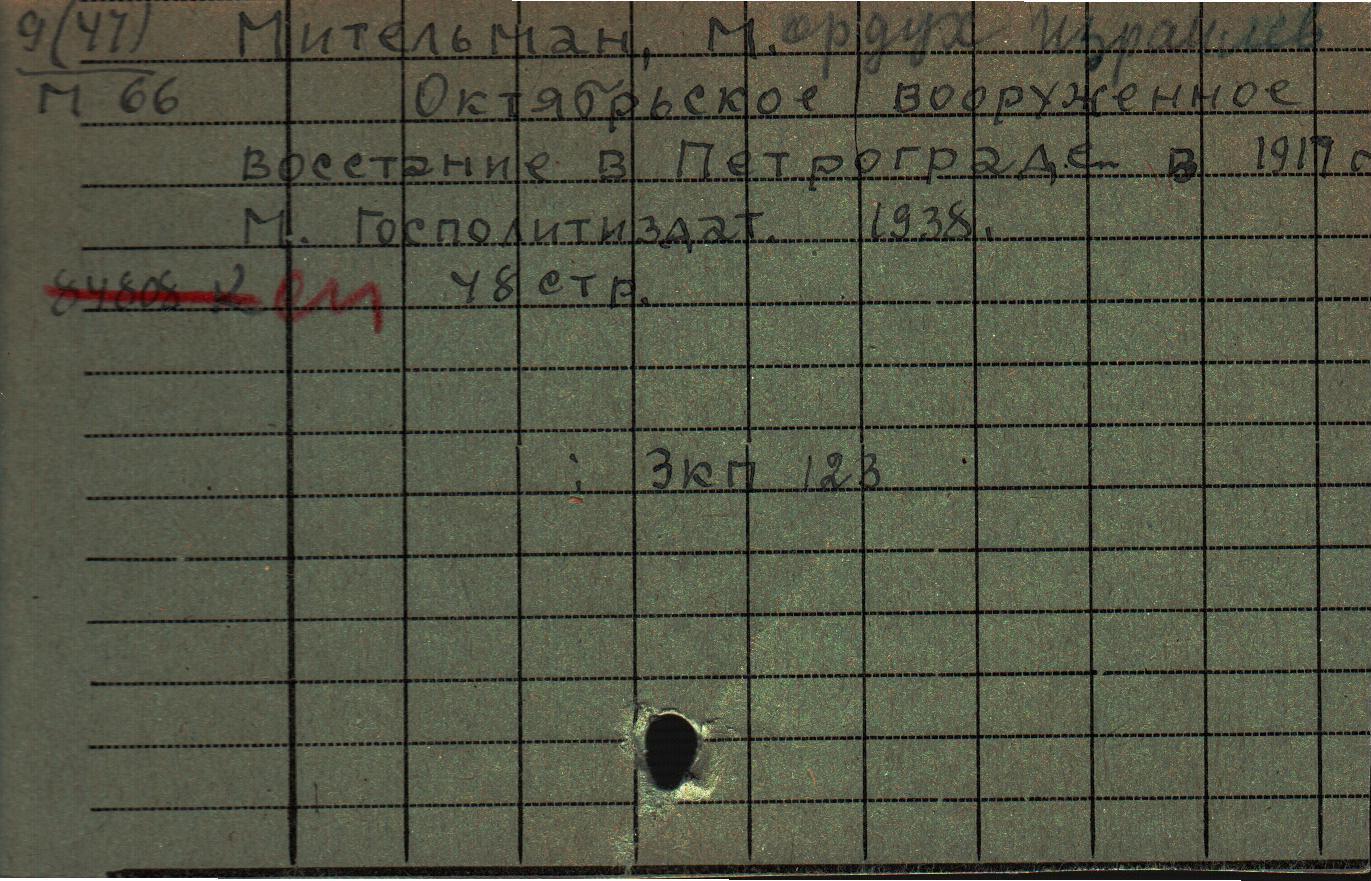 9(47) Мительман, М.ордух Израилев
М 66 Октябрьское вооруженное
восстание в Петрограде в 1917 г
М. Госполитиздат. 1938.
84808 к 48 стр.
: Зкп 123